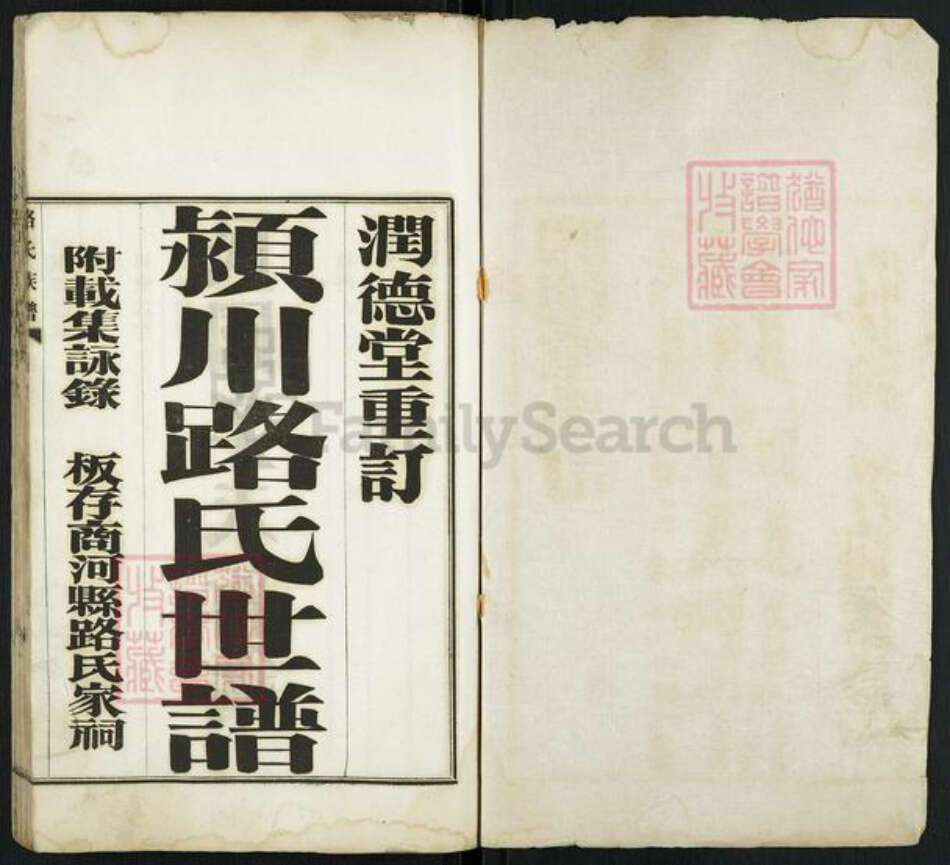 潤德堂重訂
潁川路氏世譜
附載集詠錄 板存商河縣路氏家祠
路氏族譜
猶他家譜學會收藏
FamilySearch